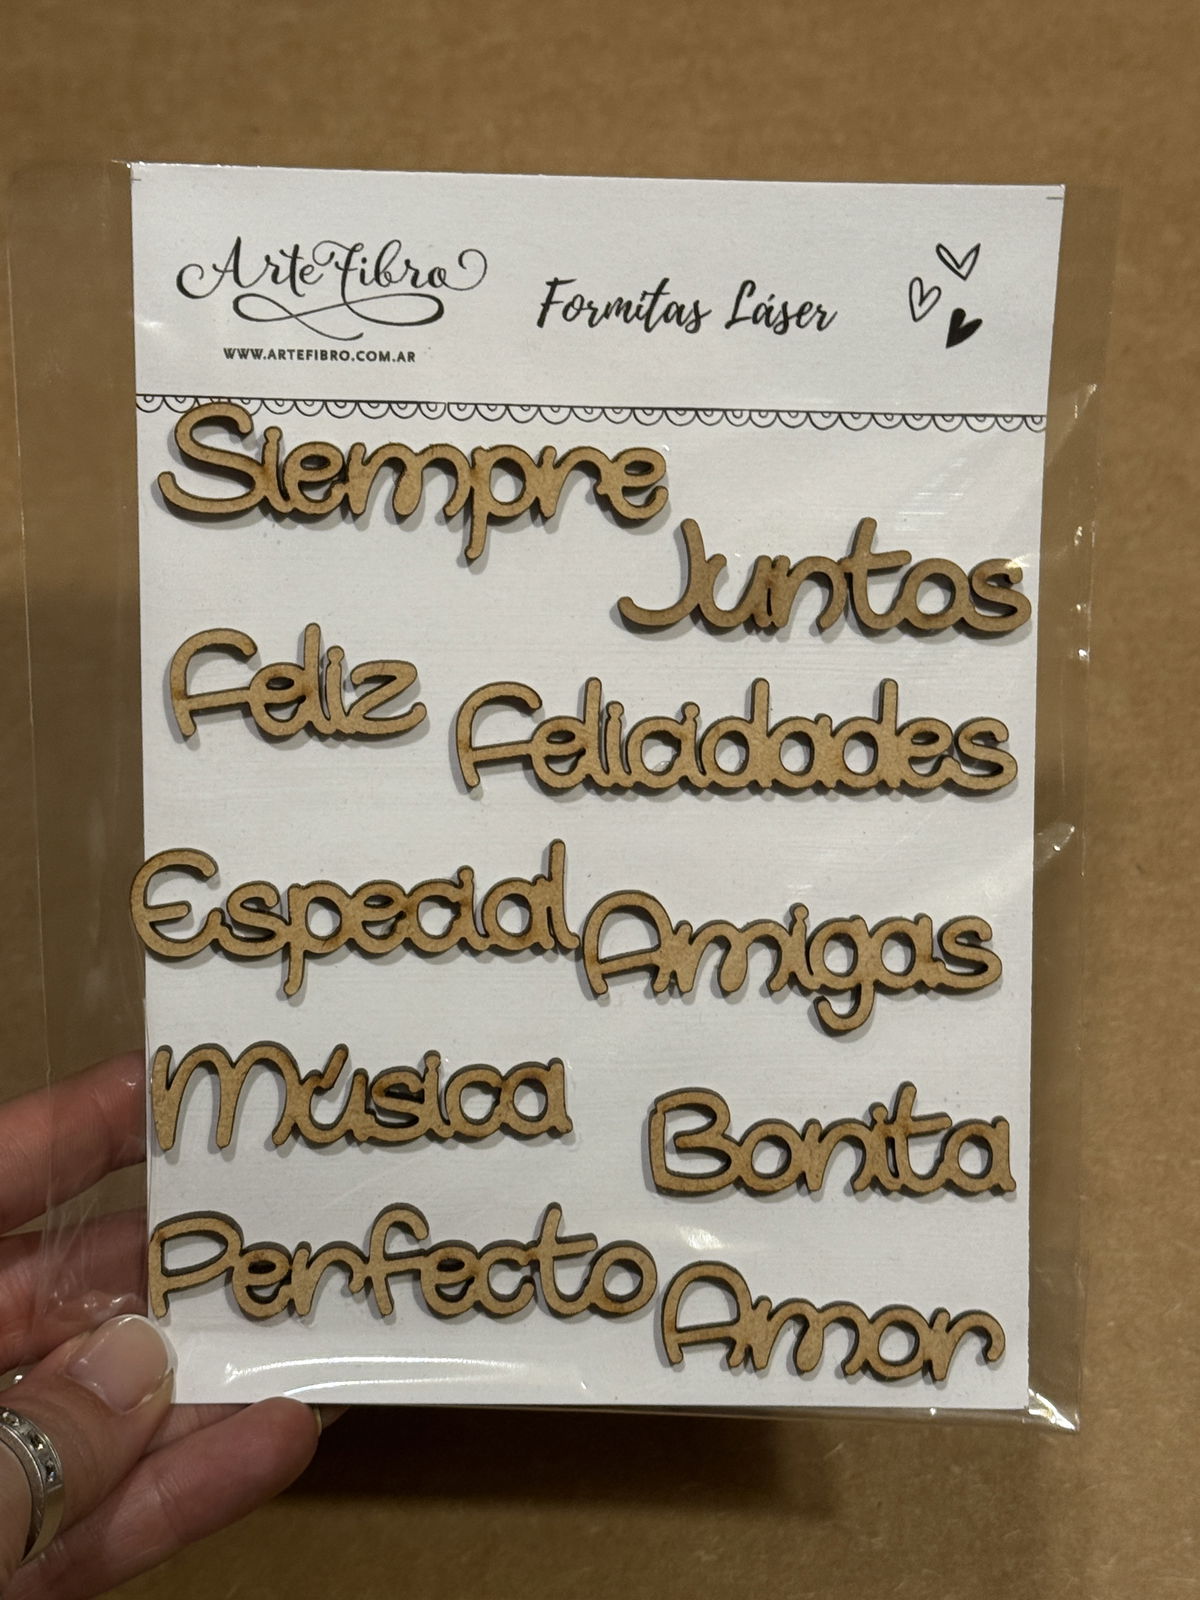 ArteFibro
WWW.ARTEFIBRO.COM.AR
Formitas Láser
Siempre
Juntos
Feliz
Felicidades
Especial
Amigas
Música
Bonita
Perfecto
Amor